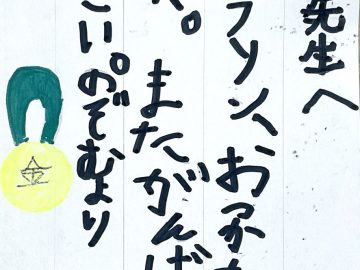 先生へ
フソン、おつか
。またがんば
い。のぞむより
金